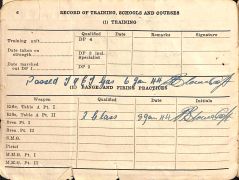 6
RECORD OF TRAINING, SCHOOLS AND COURSES
(I) TRAINING
Qualified Date Remarks Signature
Training unit DP 4
Date taken on strength DP 2 incl. Specialist
Date marked out DP 1 DP 1
Passed gas 6 Jan 44
(II) RANGE AND FIRING PRACTICES
Weapon Qualified Date Initials
Rifle, Table A Pt. I
Rifle, Table A Pt. II 2 Class 8 Jan 44
Bren Pt. I
Bren Pt. II
S.M.G.
Pistol
M.M.G. Pt. I
M.M.G. Pt. II